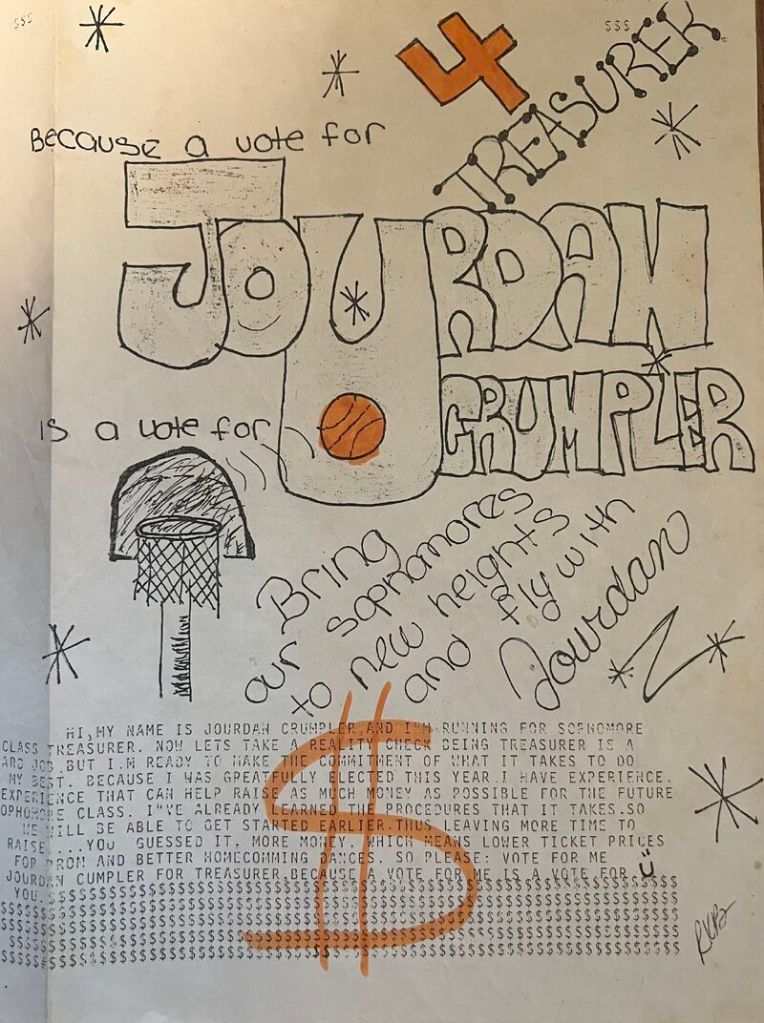 $$$
$$$
4
TREASURER
BECAUSE a vote for
JOURDAN
CRUMPLER
is a vote for
U
Bring
our sophamores
to new heights
and fly with
Jourdan
HI,MY NAME IS JOURDAN CRUMPLER,AND I"M RUNNING FOR SOPHOMORE
CLASS TREASURER. NOW LETS TAKE A REALITY CHECK BEING TREASURER IS A
ARD JOB,BUT I.M READY TO MAKE THE COMMITMENT OF WHAT IT TAKES TO DO
MY BEST. BECAUSE I WAS GREATFULLY ELECTED THIS YEAR.I HAVE EXPERIENCE.
EXPERIENCE THAT CAN HELP RAISE AS MUCH MONEY AS POSSIBLE FOR THE FUTURE
OPHOMORE CLASS. I"VE ALREADY LEARNED THE PROCEDURES THAT IT TAKES.SO
WE WILL BE ABLE TO GET STARTED EARLIER.THUS LEAVING MORE TIME TO
RAISE....YOU GUESSED IT, MORE MONEY. WHICH MEANS LOWER TICKET PRICES
FOR PROM AND BETTER HOMECOMMING DANCES. SO PLEASE: VOTE FOR ME
JOURDAN CUMPLER FOR TREASURER.BECAUSE A VOTE FOR ME IS A VOTE FOR
YOU.$$$$$$$$$$$$$$$$$$$$$$$$$$$$$$$$$$$$$$$$$$$$$$$$$$$$$$$$$$$$$$$
$$$$$$$$$$$$$$$$$$$$$$$$$$$$$$$$$$$$$$$$$$$$$$$$$$$$$$$$$$$$$$$$$$$$
$$$$$$$$$$$$$$$$$$$$$$$$$$$$$$$$$$$$$$$$$$$$$$$$$$$$$$$$$$$$$$$$$$$$
$$$$$$$$$$$$$$$$$$$$$$$$$$$$$$$$$$$$$$$$$$$$$$$$$$$$$$$$$$$$$$$$$$$$
$$$$$$$$$$$$$$$$$$$$$$$$$$$$$$$$$$$$$$$$$$$$$$$$$$$$$$$$$$$$$$$$$$$$
$